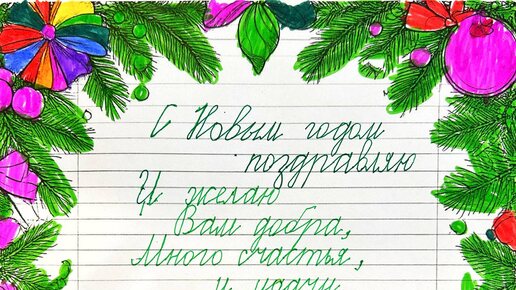 С Новым годом
поздравляю
И желаю
Вам добра,
Много счастья,
и удачи